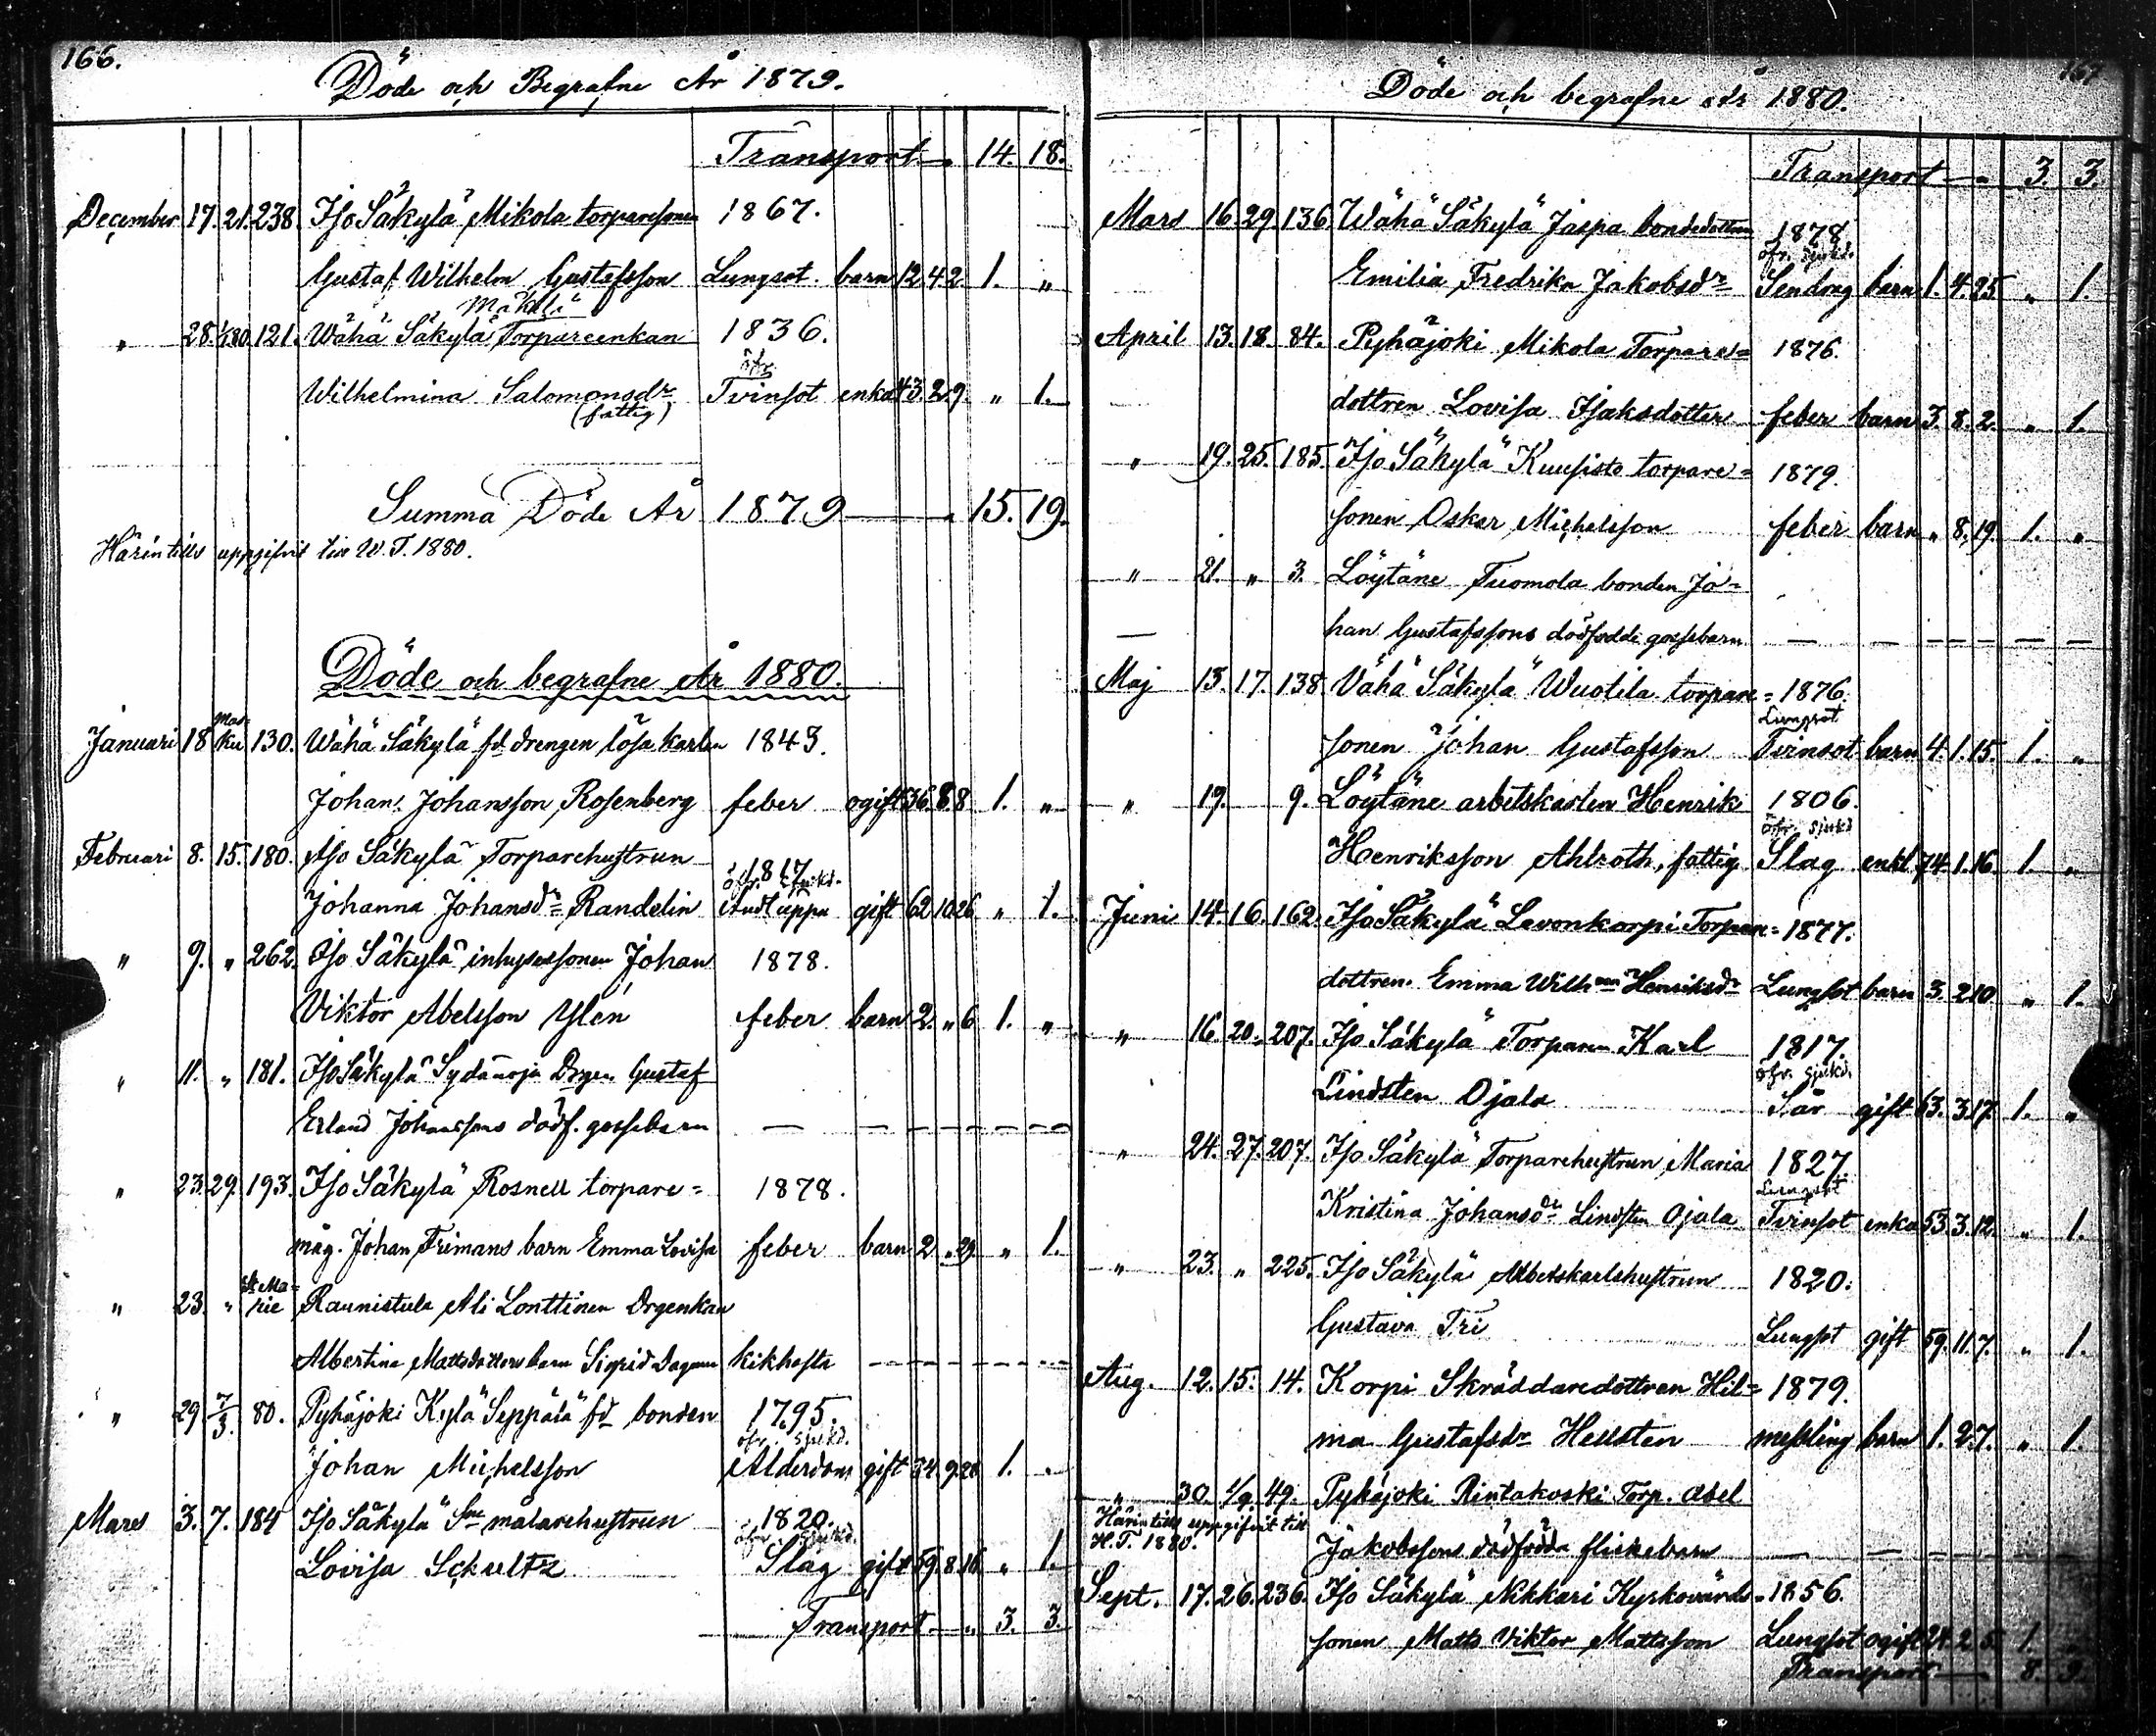 166.
Döde och Begrafne År 1879.
Transport 14. 18.
December 17. 21. 238. Iso Säkylä Mikola torparesonen 1867.
Gustaf Wilhelm Gustafsson Lungsot. barn 12. 4. 2. 1. "
Mäkilä
" 28. 1/1 80. 121. Wähä Säkylä Torpareenkan 1836.
öfr.
Wilhelmina Salomonsdr Tvinsot enka 43. 2. 9. " 1.
(fattig)
Summa Döde År 1879 15. 19.
Härintills uppgifvit till W. T. 1880.
Döde och begrafne År 1880.
Januari 18 Masku 130. Wähä Säkylä fd drengen lösa karlen 1843.
Johan Johansson Rosenberg feber ogift 36. 8. 8 1. "
Februari 8. 15. 180. Iso Säkylä Torparehustrun 1817
öfr. sjukd.
Johanna Johansdr Randelin Andtäppa gift 62 10 26 " 1.
" 9. " 262. Iso Säkylä inhysessonen Johan 1878.
Viktor Abelsson Ylén feber barn 2. " 6 1. "
" 11. " 181. Iso Säkylä Sydänoja Drgen Gustaf
Erland Johanssons dödf. gossebarn — — — — — — —
" 23. 29. 193. Iso Säkylä Rosnell torpare= 1878.
måg. Johan Frimans barn Emma Lovisa feber barn 2. " 29. " 1.
" 23. " St. Marie Raunistula Ali Lonttinen Drgenkan
Albertina Mattsdotters barn Sigrid Dagmar kikhosta — — — — — —
" 29 7/3. 80. Pyhäjoki Kylä Seppälä fd bonden 1795.
öfr. sjukd.
Johan Michelsson Ålderdom gift 84. 9. 28 1. "
Mars 3. 7. 184 Iso Säkylä Sne målarehustrun 1820.
öfr. sjukd.
Lovisa Schultz Slag gift 59. 8. 16. " 1.
Transport " 3. 3.
167
Döde och begrafne År 1880.
Transport 3. 3.
Mars 16. 29. 136. Wähä Säkylä Jaspa bondedottren 1878
öfr. sjukd.
Emilia Fredrika Jakobsdr Sendrag barn 1. 4. 25 " 1.
April 13. 18. 84. Pyhäjoki Mikola Torpare= 1876.
dottren Lovisa Isaksdotter feber barn 3. 8. 2. " 1.
" 19. 25. 185. Iso Säkylä Kuusisto torpare= 1879.
sonen Oskar Michelsson feber barn " 8. 19. 1. "
" 21. " 3. Löytäne Tuomola bonden Jo=
han Gustafssons dödfödde gossebarn — — — — — — —
Maj 13. 17. 138 Vähä Säkylä Wuotila torpare= 1876.
Lungsot
sonen Johan Gustafsson Tvinsot barn 4. 1. 15. 1. "
" 19. 9. Löytäne arbetskarlen Henrik 1806.
öfr. sjukd
Henriksson Ahlroth, fattig Slag enkl 74. 1. 16. 1. "
Juni 14. 16. 162. Iso Säkylä Levonkorpi Torpare= 1877.
dottren. Emma Wilhna Henriksdr Lungsot barn 3. 2 10 " 1.
" 16. 20. 207. Iso Säkylä Torparen Karl 1817.
öfr. sjukd.
Lindsten Ojala Sår gift 63. 3. 17. 1. "
" 24. 27. 207. Iso Säkylä Torparehustrun Maria 1827.
Lungsot
Kristina Johansdr Lindsten Ojala Tvinsot enka 53. 3. 12. " 1.
" 23. " 225. Iso Säkylä Arbetskarlshustrun 1820.
Gustava Fri Lungsot gift 59. 11. 7. " 1.
Aug. 12. 15. 14. Korpi Skräddaredottren Hil= 1879.
ma Gustafsdr Hellsten messling barn 1. 2. 7. " 1.
" 30. 1/9. 49. Pyhäjoki Rintakoski Torp. Abel
Härintills uppgifvit till
H. T. 1880.
Jakobssons dödfödda flickebarn — — — — — — —
Sept. 17. 26. 236. Iso Säkylä Nikkari Kyrkovärds= 1856.
sonen Matts Viktor Mattsson Lungsot ogift 24. 2 5. 1.
Transport 8. 9.